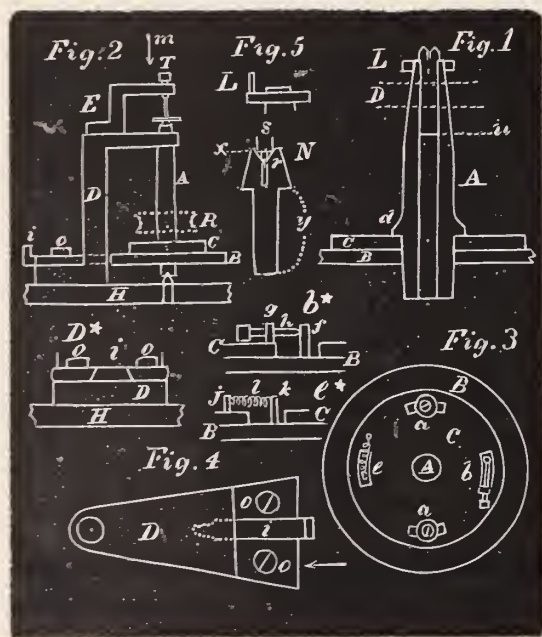 Fig. 2
m
T
E
A
D
R
i
o
C
B
H
Fig. 5
L
s
x
N
r
y
Fig. 1
L
D
u
A
d
C
B
D*
o
i
o
D
H
b*
g
h
f
C
B
e*
j
l
k
C
B
Fig. 3
B
a
C
e
A
b
a
Fig. 4
D
o
i
o